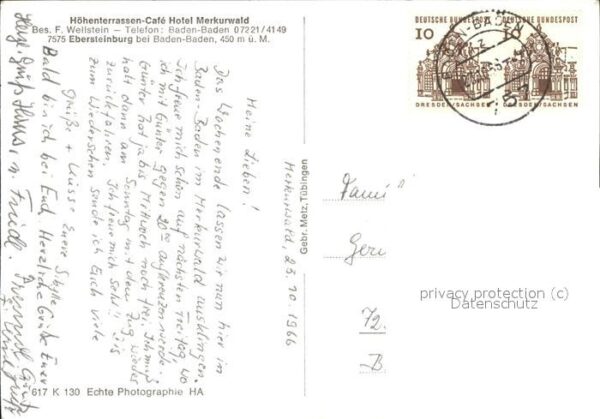 Höhenterrassen-Café Hotel Merkurwald
Bes. F. Wellstein – Telefon: Baden-Baden 07221/4149
7575 Ebersteinburg bei Baden-Baden, 450 m ü. M.
Merkurwald, 23.10.1966
Meine Lieben!
Das Wochenende lassen wir nun hier in
Baden-Baden im Merkurwald ausklingen.
Ich freue mich schon auf nächsten Freitag, wo
ich mit Günter gegen 20 aufkreuzen werde.
Günter hat ja bis Mittwoch noch frei. Ich muß
halt dann am Sonntag mit dem Zug wieder
zurückfahren. Ich freue mich sehr!! Bis
zum Wiedersehen sende ich Euch viele
Grüße + Küsse Euere Sibylle
Bald bin ich bei Euch, Herzliche Grüße Euer
Herzl. Grüße Hans, u. Friedl.
617 K 130 Echte Photographie HA
Gebr. Metz, Tübingen
DEUTSCHE BUNDESPOST
10
DRESDEN/SACHSEN
DEUTSCHE BUNDESPOST
10
DRESDEN/SACHSEN
Fami
Geri
72.
privacy protection (c)
Datenschutz